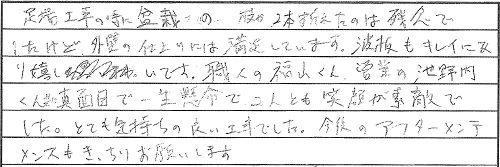 足場工事の時に盆栽の 枝が2本折れたのは残念で
したけど、外壁の仕上りには満足しています。波板もキレイにな
り嬉しいです。職人の福山くん、営業の池野内
くんが真面目で一生懸命で、2人とも笑顔が素敵で
した。とても気持ちの良い工事でした。今後のアフターメンテ
メンスもきっちりお願いします